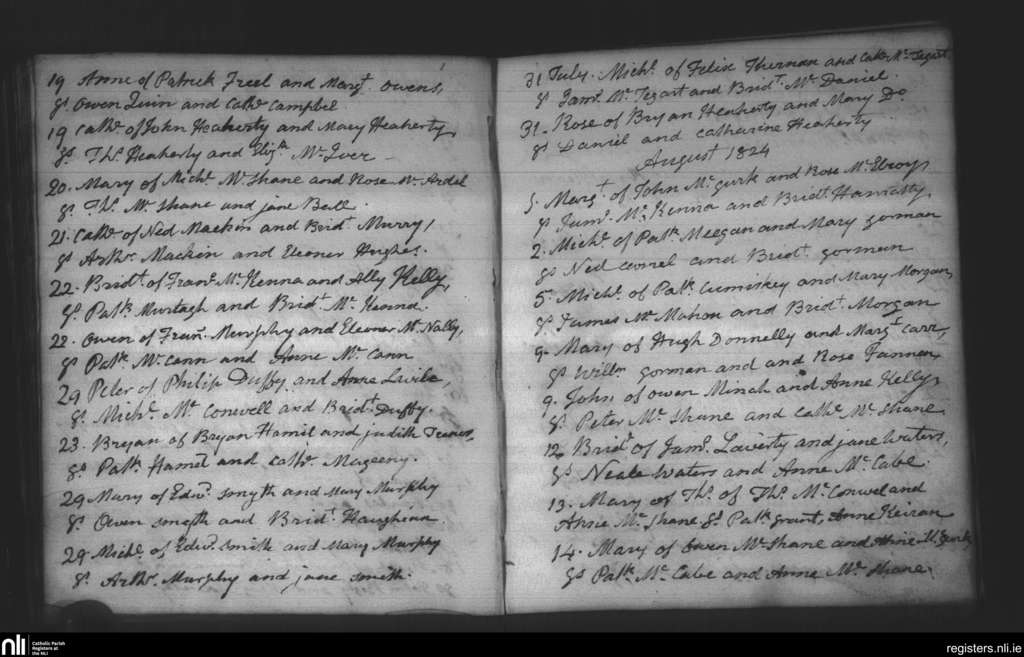 19 Anne of Patrick Freel and Margt Owens,
Ss Owen Quin and Cathe Campbel
19 Cathe of John Heaherty and Mary Heaherty,
Ss Ths Heaherty and Elizth Mc Iver
20. Mary of Michl Mc Shane and Rose Mc Ardel
Ss Ths Mc Shane and jane Bell.
21. Cathe of Ned Mackin and Bridt Murry,
Ss Arthr Mackin and Eleoner Hughes.
22. Bridt of Frans Mc Kenna and Ally Kelly,
Ss Patk Murtagh and Bridt Mc Kenna.
22. Owen of Frans Murphy and Eleoner Mc Nally,
Ss Patk Mc Cann and Anne Mc Cann
29 Peter of Philip Duffy and Anne
Ss Michl Mc Conwell and Bridt Duffy.
23. Bryan of Bryan Hamil and judith
Ss Patk Hamil and Cathe Mageeny.
29 Mary of Edwd Smyth and Mary Murphy
Ss Owen Smyth and Bridt
29 Michl of Edwd Smith and Mary Murphy
Ss Arthr Murphy and jane Smith.
31 July. Michl of Felix and Cathe Mc Tegart
Ss Jams Mc Tegart and Bridt Mc Daniel
31. Rose of Bryan Heaherty and Mary Do
Ss Daniel and Catharine Heaherty
August 1824
5. Margt of John Mc gurk and Rose Mc Elroy,
Ss Jams Mc Kenna and Bridt Hanratty,
2. Michl of Patk Meegan and Mary gorman
Ss Ned and Bridt gorman
5. Michl of Patk Cumiskey and Mary Morgan,
Ss James Mc Mahon and Bridt Morgan
9. Mary of Hugh Donnelly and Margt Carr,
Ss Willm gorman and and Rose Fannon,
9. John of Owen Minah and Anne Kelly,
Ss Peter Mc Shane and Cathe Mc Shane
12 Bridt of Jams Laverty and jane Waters,
Ss Neale Waters and Anne Mc Cabe.
13. Mary of Ths of Ths Mc Conwel and
Anne Mc Shane Ss Patk grant, Anne Keiran
14. Mary of Owen Mc Shane and Anne Mc gurk
Ss Patk Mc Cabe and Anne Mc Shane.
nli
Catholic Parish
Registers at
the NLI
registers.nli.ie